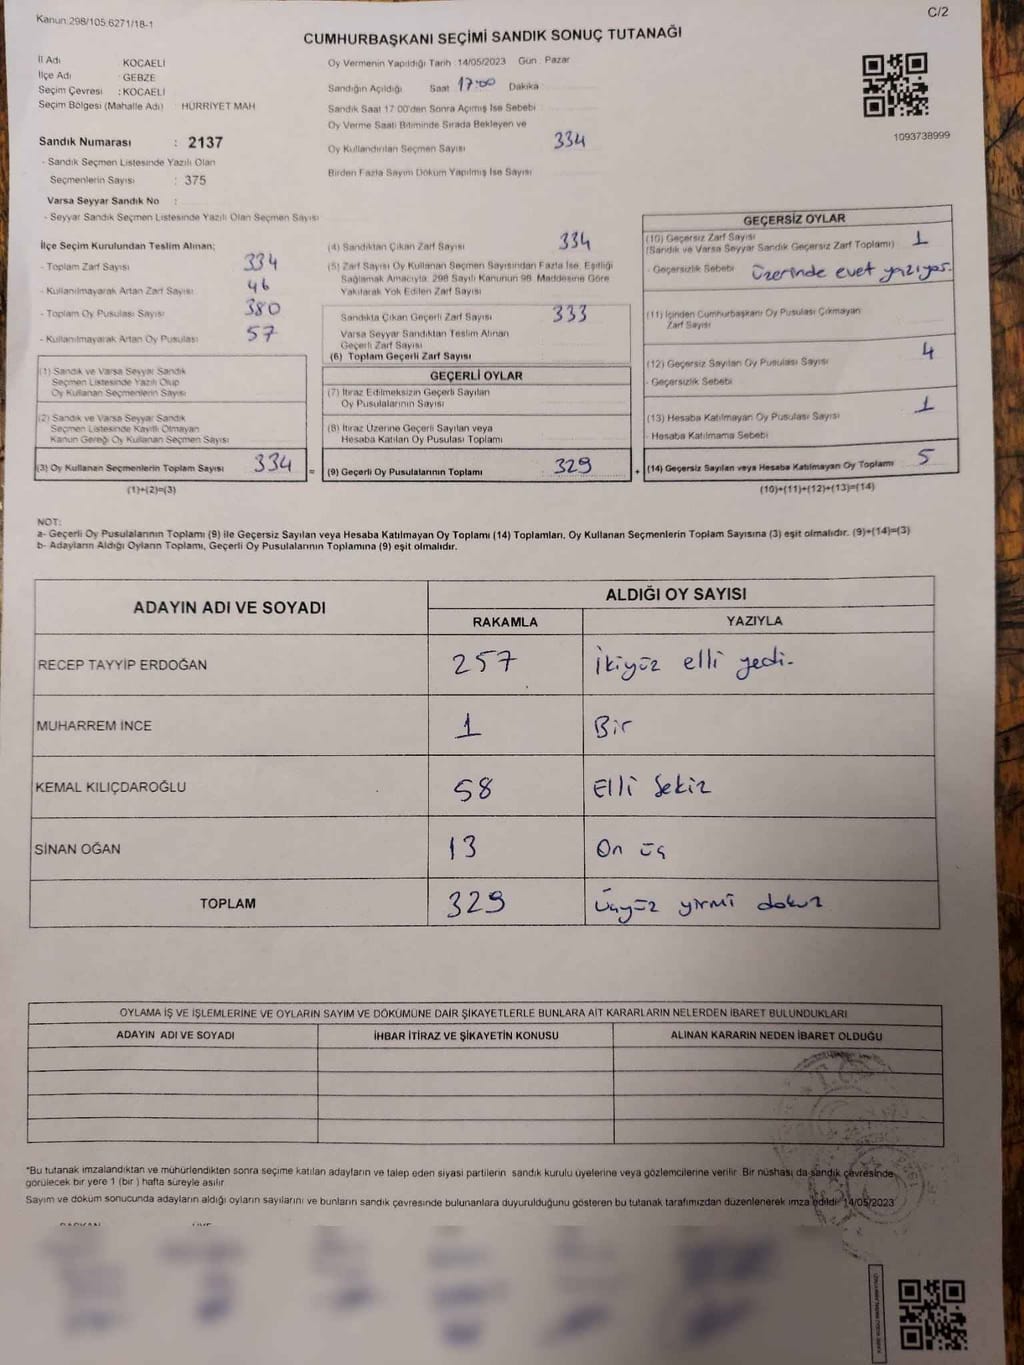 Kanun 298/105.6271/18-1
C/2
CUMHURBAŞKANI SEÇİMİ SANDIK SONUÇ TUTANAĞI
İl Adı KOCAELİ
İlçe Adı GEBZE
Seçim Çevresi : KOCAELİ
Seçim Bölgesi (Mahalle Adı) HÜRRİYET MAH
Oy Vermenin Yapıldığı Tarih 14/05/2023 Gün Pazar
Sandığın Açıldığı Saat 17:00 Dakika
Sandık Saat 17 00'den Sonra Açımış İse Sebebi
Oy Verme Saati Bitiminde Sırada Bekleyen ve
Oy Kullandırılan Seçmen Sayısı 334
Birden Fazla Sayım Döküm Yapılmış İse Sayısı
1093738999
Sandık Numarası : 2137
- Sandık Seçmen Listesinde Yazılı Olan
Seçmenlerin Sayısı : 375
Varsa Seyyar Sandık No :
- Seyyar Sandık Seçmen Listesinde Yazılı Olan Seçmen Sayısı
İlçe Seçim Kurulundan Teslim Alınan:
- Toplam Zarf Sayısı 334
- Kullanılmayarak Artan Zarf Sayısı 46
- Toplam Oy Pusulası Sayısı 380
- Kullanılmayarak Artan Oy Pusulası 57
(1) Sandık ve Varsa Seyyar Sandık
Seçmen Listesinde Yazılı Olup
Oy Kullanan Seçmenlerin Sayısı
(2) Sandık ve Varsa Seyyar Sandık
Seçmen Listesinde Kayıtlı Olmayan
Kanun Gereği Oy Kullanan Seçmen Sayısı
(3) Oy Kullanan Seçmenlerin Toplam Sayısı 334
(1)+(2)=(3)
(4) Sandıktan Çıkan Zarf Sayısı 334
(5) Zarf Sayısı Oy Kullanan Seçmen Sayısından Fazla İse, Eşitliği
Sağlamak Amacıyla, 298 Sayılı Kanunun 98. Maddesine Göre
Yakılarak Yok Edilen Zarf Sayısı
Sandıkta Çıkan Geçerli Zarf Sayısı 333
Varsa Seyyar Sandıktan Teslim Alınan
Geçerli Zarf Sayısı
(6) Toplam Geçerli Zarf Sayısı
GEÇERLİ OYLAR
(7) İtiraz Edilmeksizin Geçerli Sayılan
Oy Pusulalarının Sayısı
(8) İtiraz Üzerine Geçerli Sayılan veya
Hesaba Katılan Oy Pusulası Toplamı
= (9) Geçerli Oy Pusulalarının Toplamı 329
GEÇERSİZ OYLAR
(10) Geçersiz Zarf Sayısı 1
(Sandık ve Varsa Seyyar Sandık Geçersiz Zarf Toplamı)
- Geçersizlik Sebebi üzerinde evet yazıyor.
(11) İçinden Cumhurbaşkanı Oy Pusulası Çıkmayan
Zarf Sayısı
(12) Geçersiz Sayılan Oy Pusulası Sayısı 4
- Geçersizlik Sebebi
(13) Hesaba Katılmayan Oy Pusulası Sayısı 1
- Hesaba Katılmama Sebebi
+ (14) Geçersiz Sayılan veya Hesaba Katılmayan Oy Toplamı 5
(10)+(11)+(12)+(13)=(14)
NOT:
a- Geçerli Oy Pusulalarının Toplamı (9) ile Geçersiz Sayılan veya Hesaba Katılmayan Oy Toplamı (14) Toplamları, Oy Kullanan Seçmenlerin Toplam Sayısına (3) eşit olmalıdır. (9)+(14)=(3)
b- Adayların Aldığı Oyların Toplamı, Geçerli Oy Pusulalarının Toplamına (9) eşit olmalıdır.
ADAYIN ADI VE SOYADI
ALDIĞI OY SAYISI
RAKAMLA YAZIYLA
RECEP TAYYİP ERDOĞAN 257 İkiyüz elli yedi-
MUHARREM İNCE 1 Bir
KEMAL KILIÇDAROĞLU 58 Elli Sekiz
SİNAN OĞAN 13 On üç
TOPLAM 329 üçyüz yirmi dokuz
OYLAMA İŞ VE İŞLEMLERİNE VE OYLARIN SAYIM VE DÖKÜMÜNE DAİR ŞİKAYETLERLE BUNLARA AİT KARARLARIN NELERDEN İBARET BULUNDUKLARI
ADAYIN ADI VE SOYADI İHBAR İTİRAZ VE ŞİKAYETİN KONUSU ALINAN KARARIN NEDEN İBARET OLDUĞU
*Bu tutanak imzalandıktan ve mühürlendikten sonra seçime katılan adayların ve talep eden siyasi partilerin sandık kurulu üyelerine veya gözlemcilerine verilir. Bir nüshası da sandık çevresinde
görülecek bir yere 1 (bir ) hafta süreyle asılır
Sayım ve döküm sonucunda adayların aldığı oyların sayılarını ve bunların sandık çevresinde bulunanlara duyurulduğunu gösteren bu tutanak tarafımızdan düzenlenerek imza edildi. 14/05/2023
BAŞKAN ÜYE